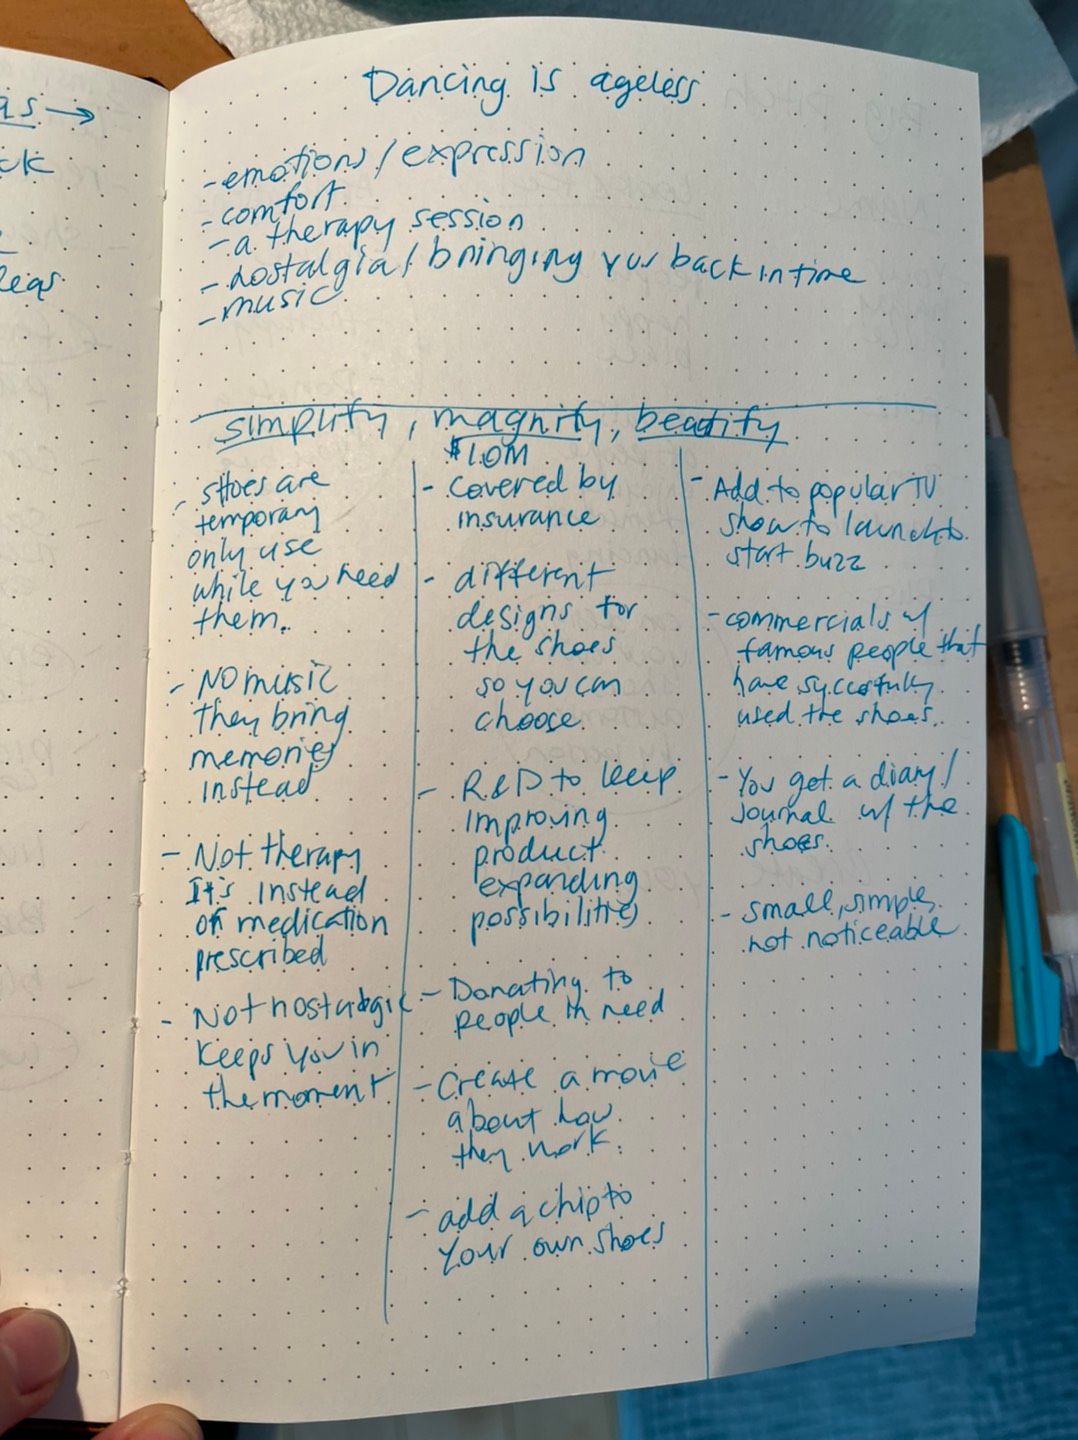 as →
ck
e
leas
Dancing is ageless
- emotions / expression
- comfort
- a therapy session
- nostalgia / bringing you back in time
- music
simplify, magnify, beautify
- shoes are
temporary
only use
while you need
them.
- No music
they bring
memories
instead
- Not therapy
It's instead
of medication
prescribed
- Not nostalgic
keeps you in
the moment
$10M
- covered by
insurance
- different
designs for
the shoes
so you can
choose.
- R&D to keep
improving
product
expanding
possibilities
- Donating to
people in need
- Create a movie
about how
they work.
- add a chip to
your own shoes
- Add to popular TV
show to launch to
start buzz
- commercials w/
famous people that
have succesfully
used the shoes.
- You get a diary/
Journal w/ the
shoes.
- small, simple,
not noticeable